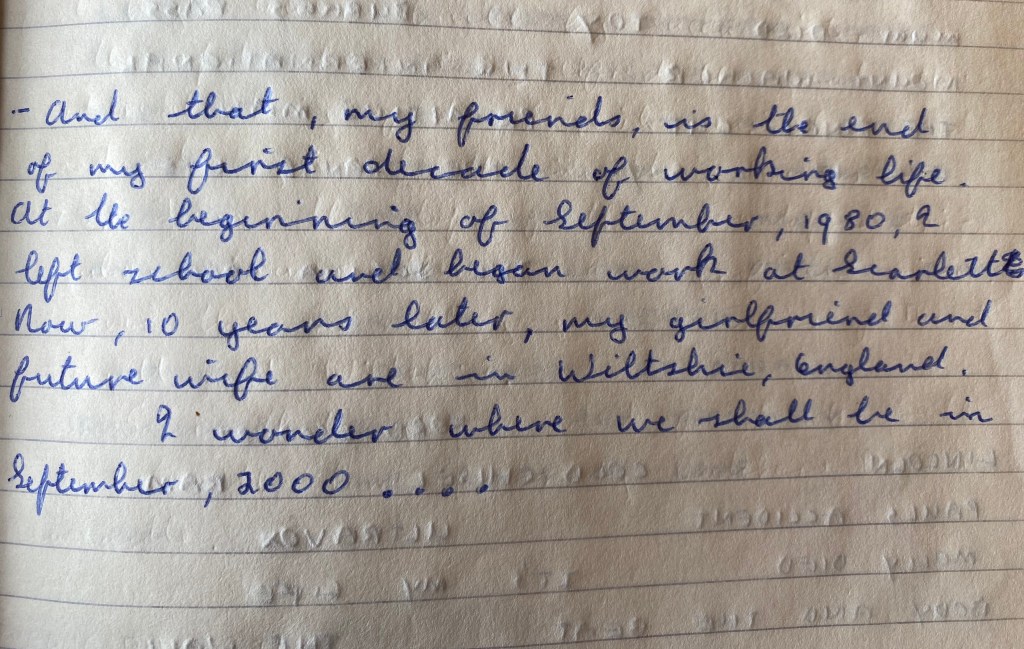 - And that, my friends, is the end
of my first decade of working life.
At the beginning of September, 1980, I
left school and began work at Scarletts
Now, 10 years later, my girlfriend and
future wife are in Wiltshire, England.
I wonder where we shall be in
September, 2000 ....